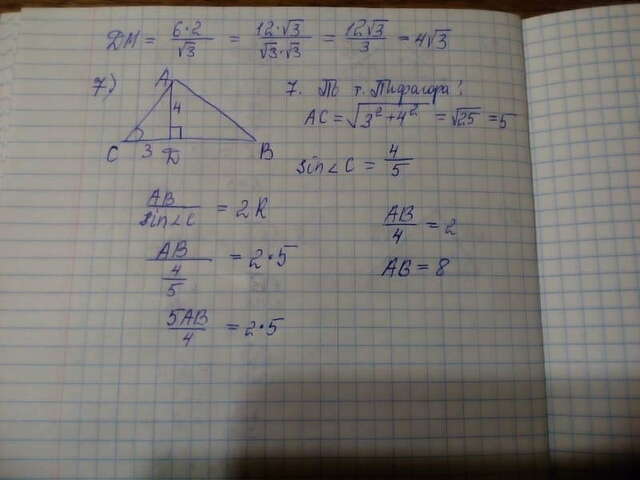 DM = 6·2/√3 = 12·√3/√3·√3 = 12√3/3 = 4√3
7)
A
4
C 3 D B
7. По т. Пифагора:
AC = √3²+4² = √25 = 5
sin∠C = 4/5
AB/sin∠C = 2R
AB/4/5 = 2·5
5AB/4 = 2·5
AB/4 = 2
AB = 8